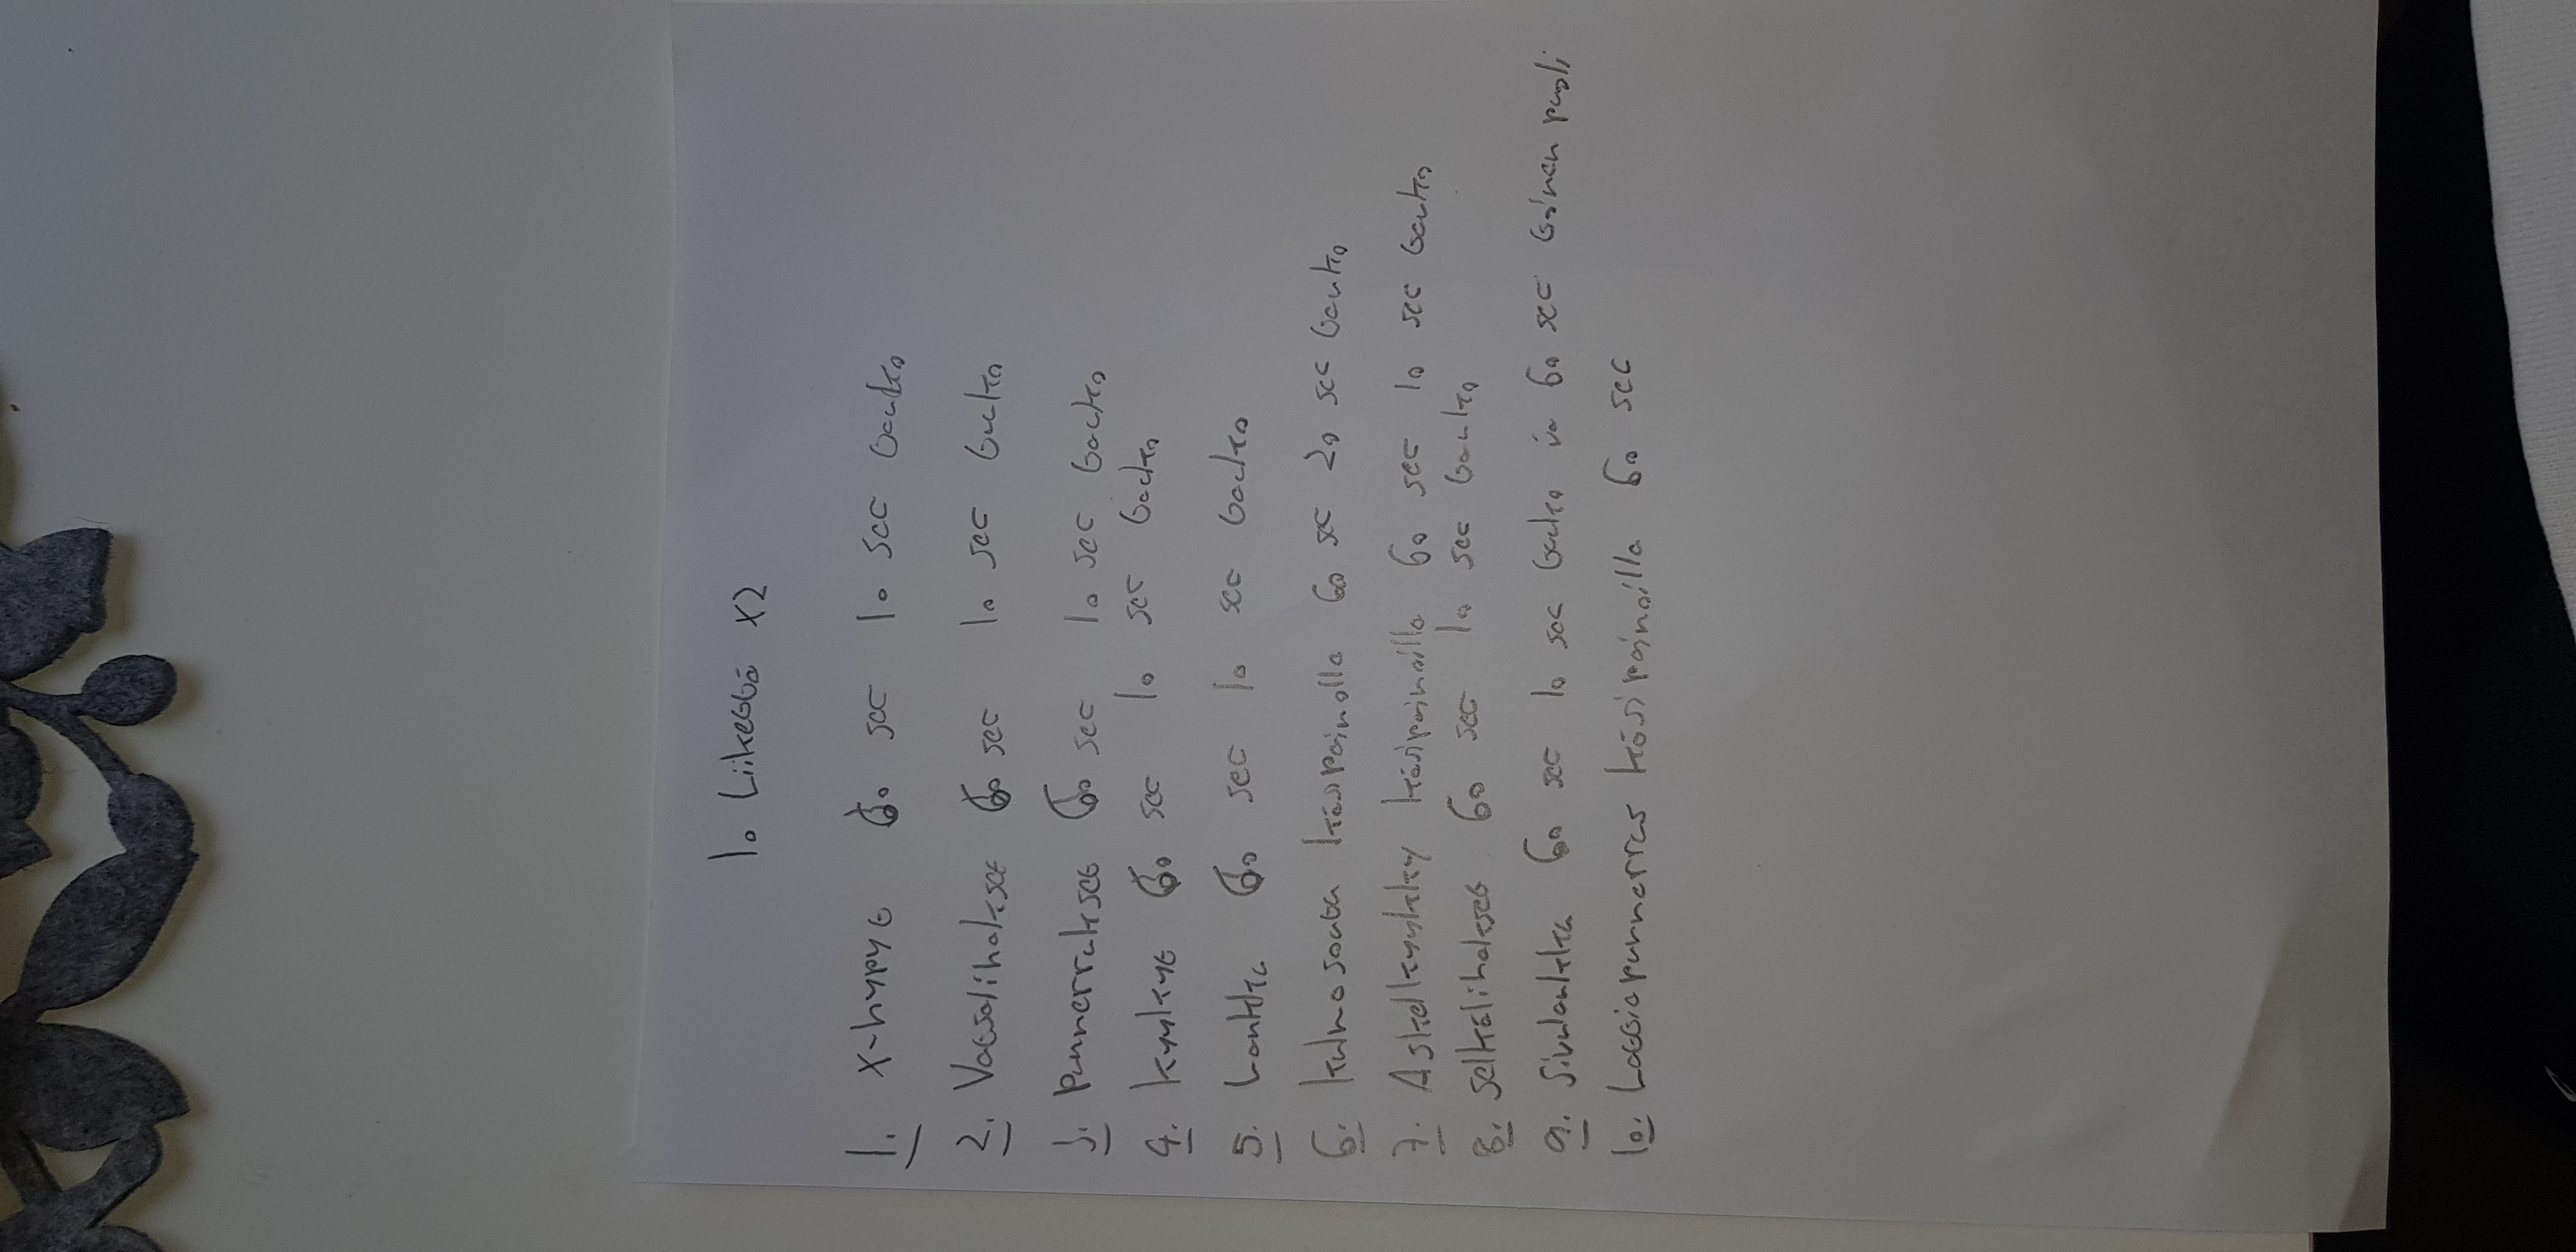 10 Liikettä x2
1. X-hypyt 60 sec 10 sec tauko
2. Vatsalihakset 60 sec 10 sec tauko
3. Punnerrukset 60 sec 10 sec tauko
4. kyykyt 60 sec 10 sec tauko
5. Lankku 60 sec 10 sec tauko
6. kulmasoutu käsipainolla 60 sec 20 sec tauko
7. Askelkyykky käsipainoilla 60 sec 10 sec tauko
8. selkälihakset 60 sec 10 sec tauko
9. Sivulankku 60 sec 10 sec tauko ja 60 sec toinen puoli
10. Lattiapunnerrus käsipainoilla 60 sec